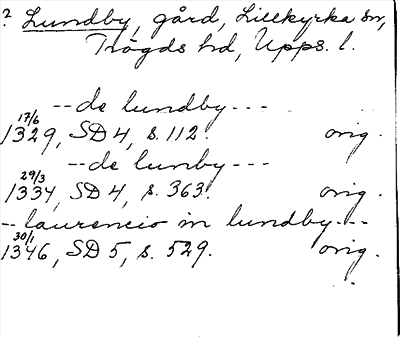 ? Lundby, gård, Lillkyrka sn,
Trögds hd, Upps. l.
-- de lundby ---
17/6
1329, SD 4, s. 112. orig.
-- de lunby ---
29/3
1334, SD 4, s. 363. orig.
-- laurencio in lundby ---
30/1
1346, SD 5, s. 529. orig.